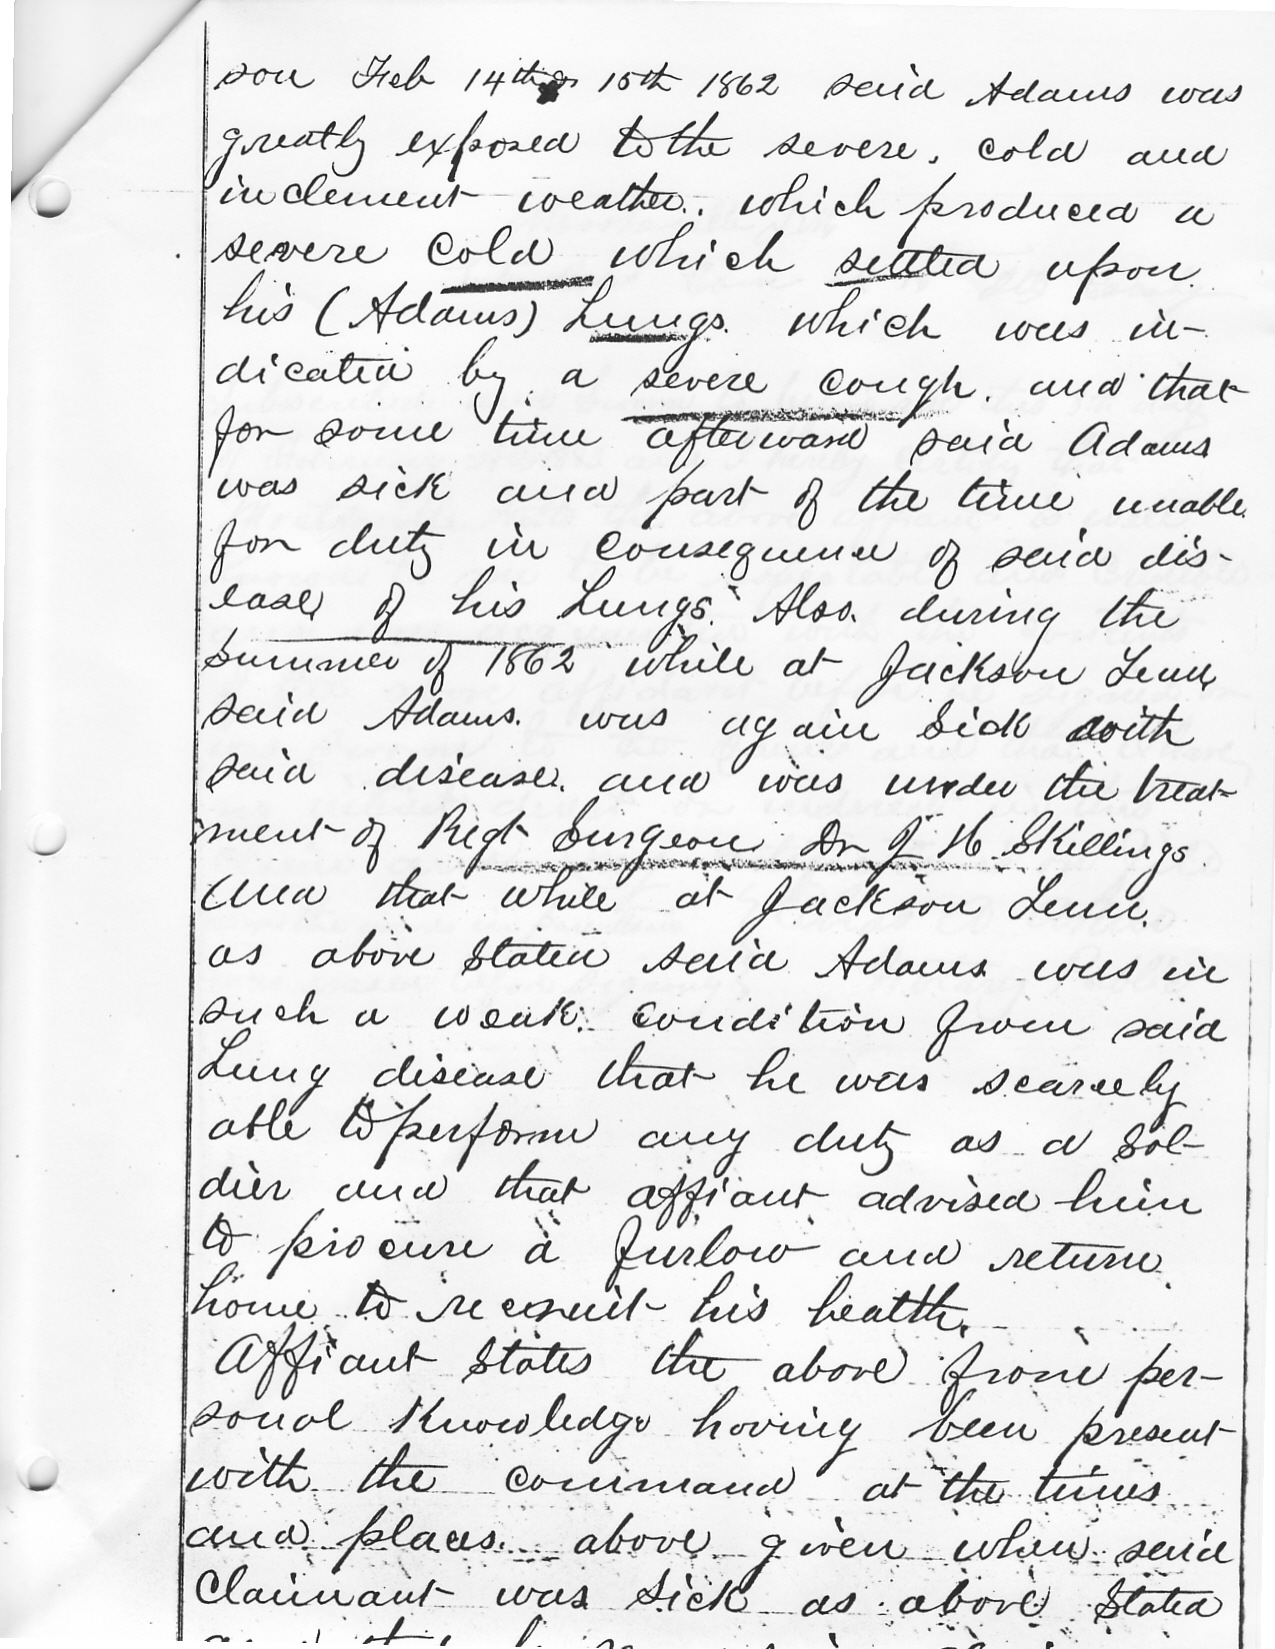 son Feb 14th & 15th 1862 said Adams was
greatly exposed to the severe, cold and
inclement weather. which produced a
severe cold which settled upon
his (Adams) Lungs. which was in-
dicated by a severe cough. and that
for some time afterward said Adams
was sick and part of the time unable
for duty in consequence of said dis-
ease of his Lungs. Also. during the
summer of 1862 while at Jackson Tenn
said Adams. was again sick with
said disease. and was under the treat-
ment of Regt Surgeon Dr J H Skillings.
And that while at Jackson Tenn.
as above stated said Adams was in
such a weak. condition from said
Lung disease that he was scarcely
able to perform any duty as a Sol-
dier and that affiant advised him
to procure a furlow and return
home to recruit his health.
Affiant States the above from per-
sonal Knowledge having been present
with the command at the times
and places. above given when said
Claimant was sick as above stated